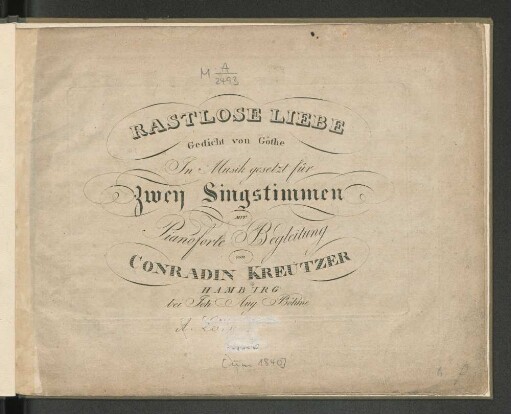 M A
2493
RASTLOSE LIEBE
Gedicht von Göthe
In Musik gesetzt für
Zwey Singstimmen
MIT
Pianoforte Begleitung
von
CONRADIN KREUTZER
HAMBURG
bei Joh. Aug. Böhme
[um 1840]